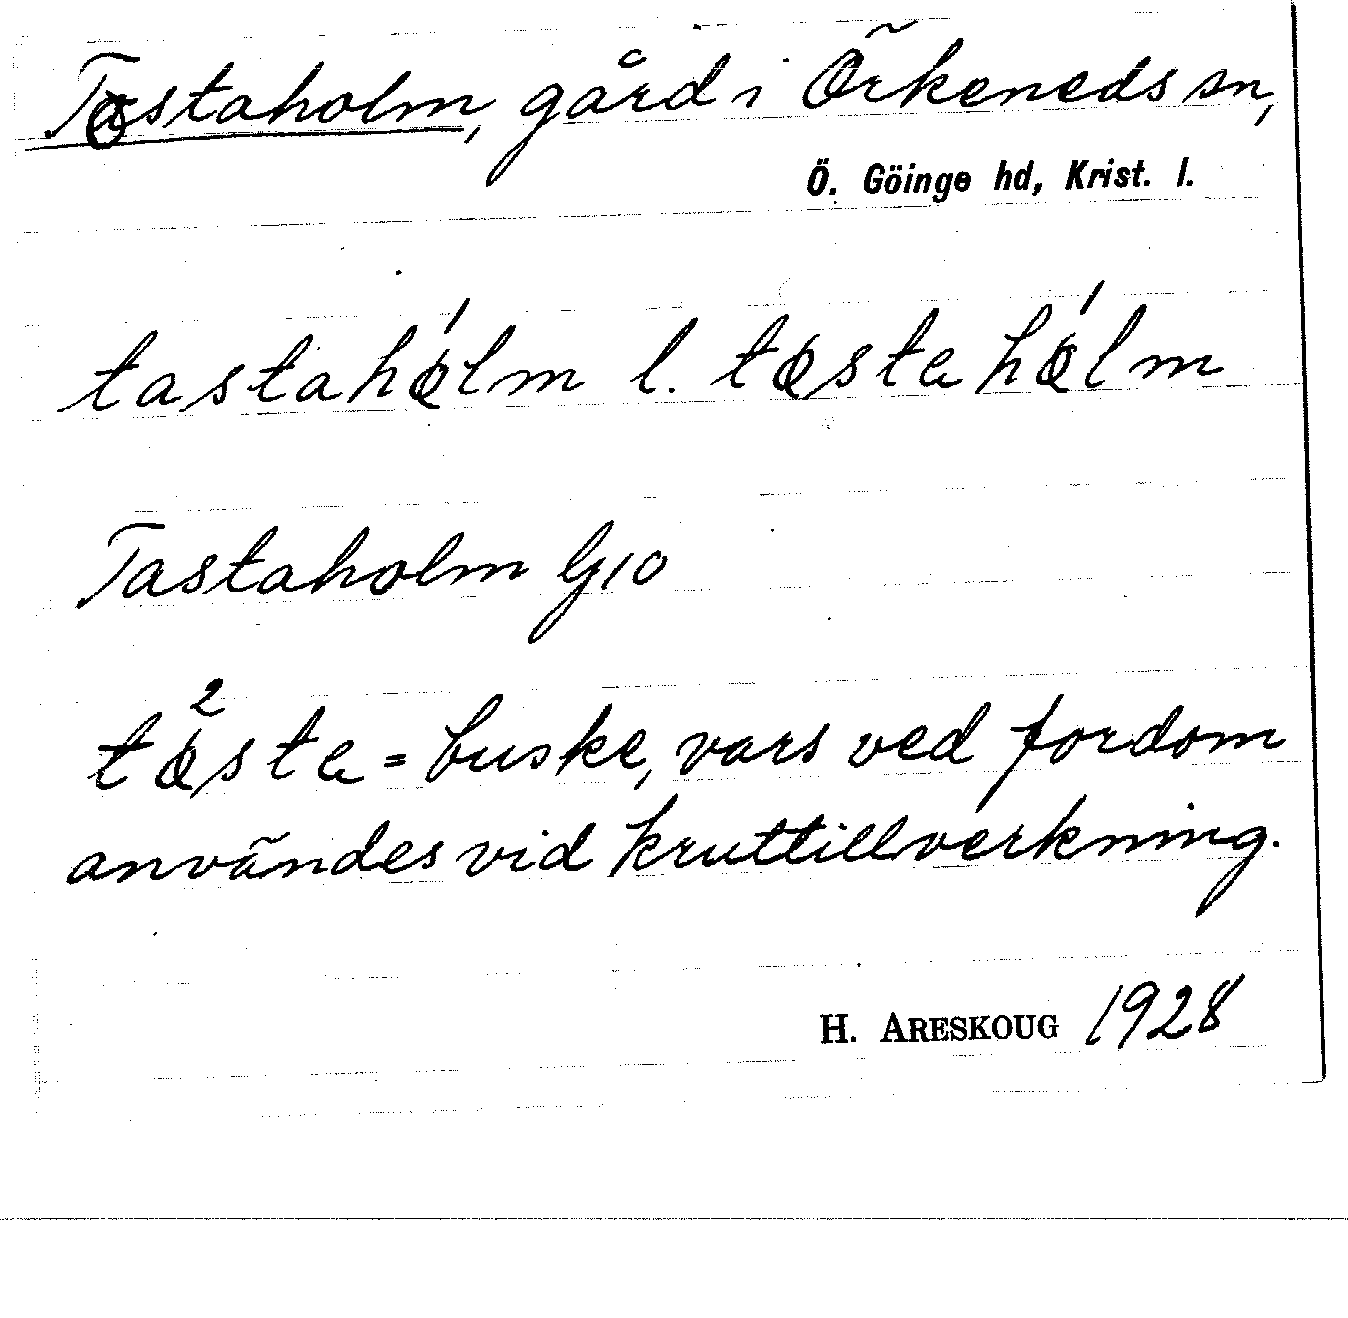 Tastaholm, gård i Örkeneds sn,
Ö. Göinge hd, Krist. l.
tastahó̵lm l. tɷstahɷ́lm
Tastaholm G10
tɷ²sta = buske, vars ved fordom
användes vid kruttillverkning.
H. ARESKOUG 1928